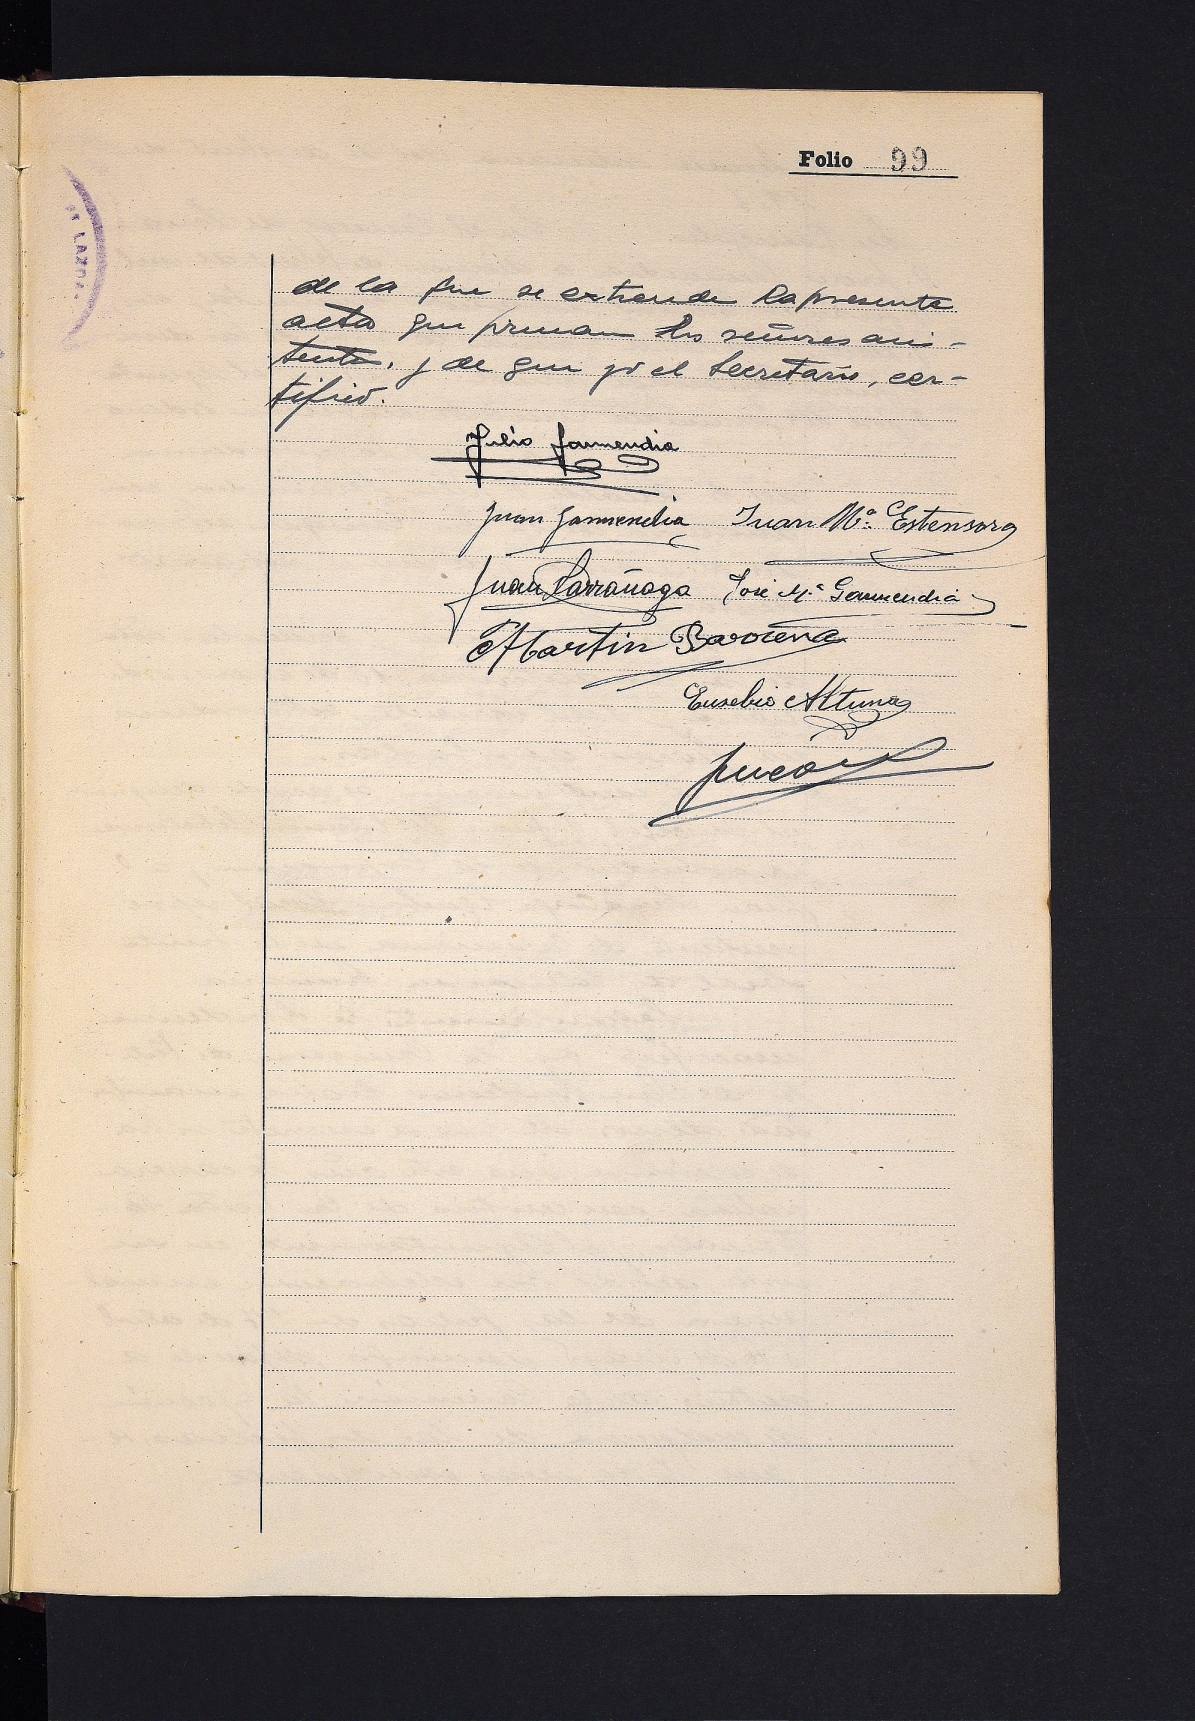 Folio 99
de la que se extiende la presente
acta que firman los señores asis-
tentes, y de que yo el Secretario, cer-
tifico.
Julio Garmendia
Juan Garmendia Juan Mª. Estensoro
Juan Larrañaga José Mª Garmendia
Martin Barcena
Eusebio Altuna